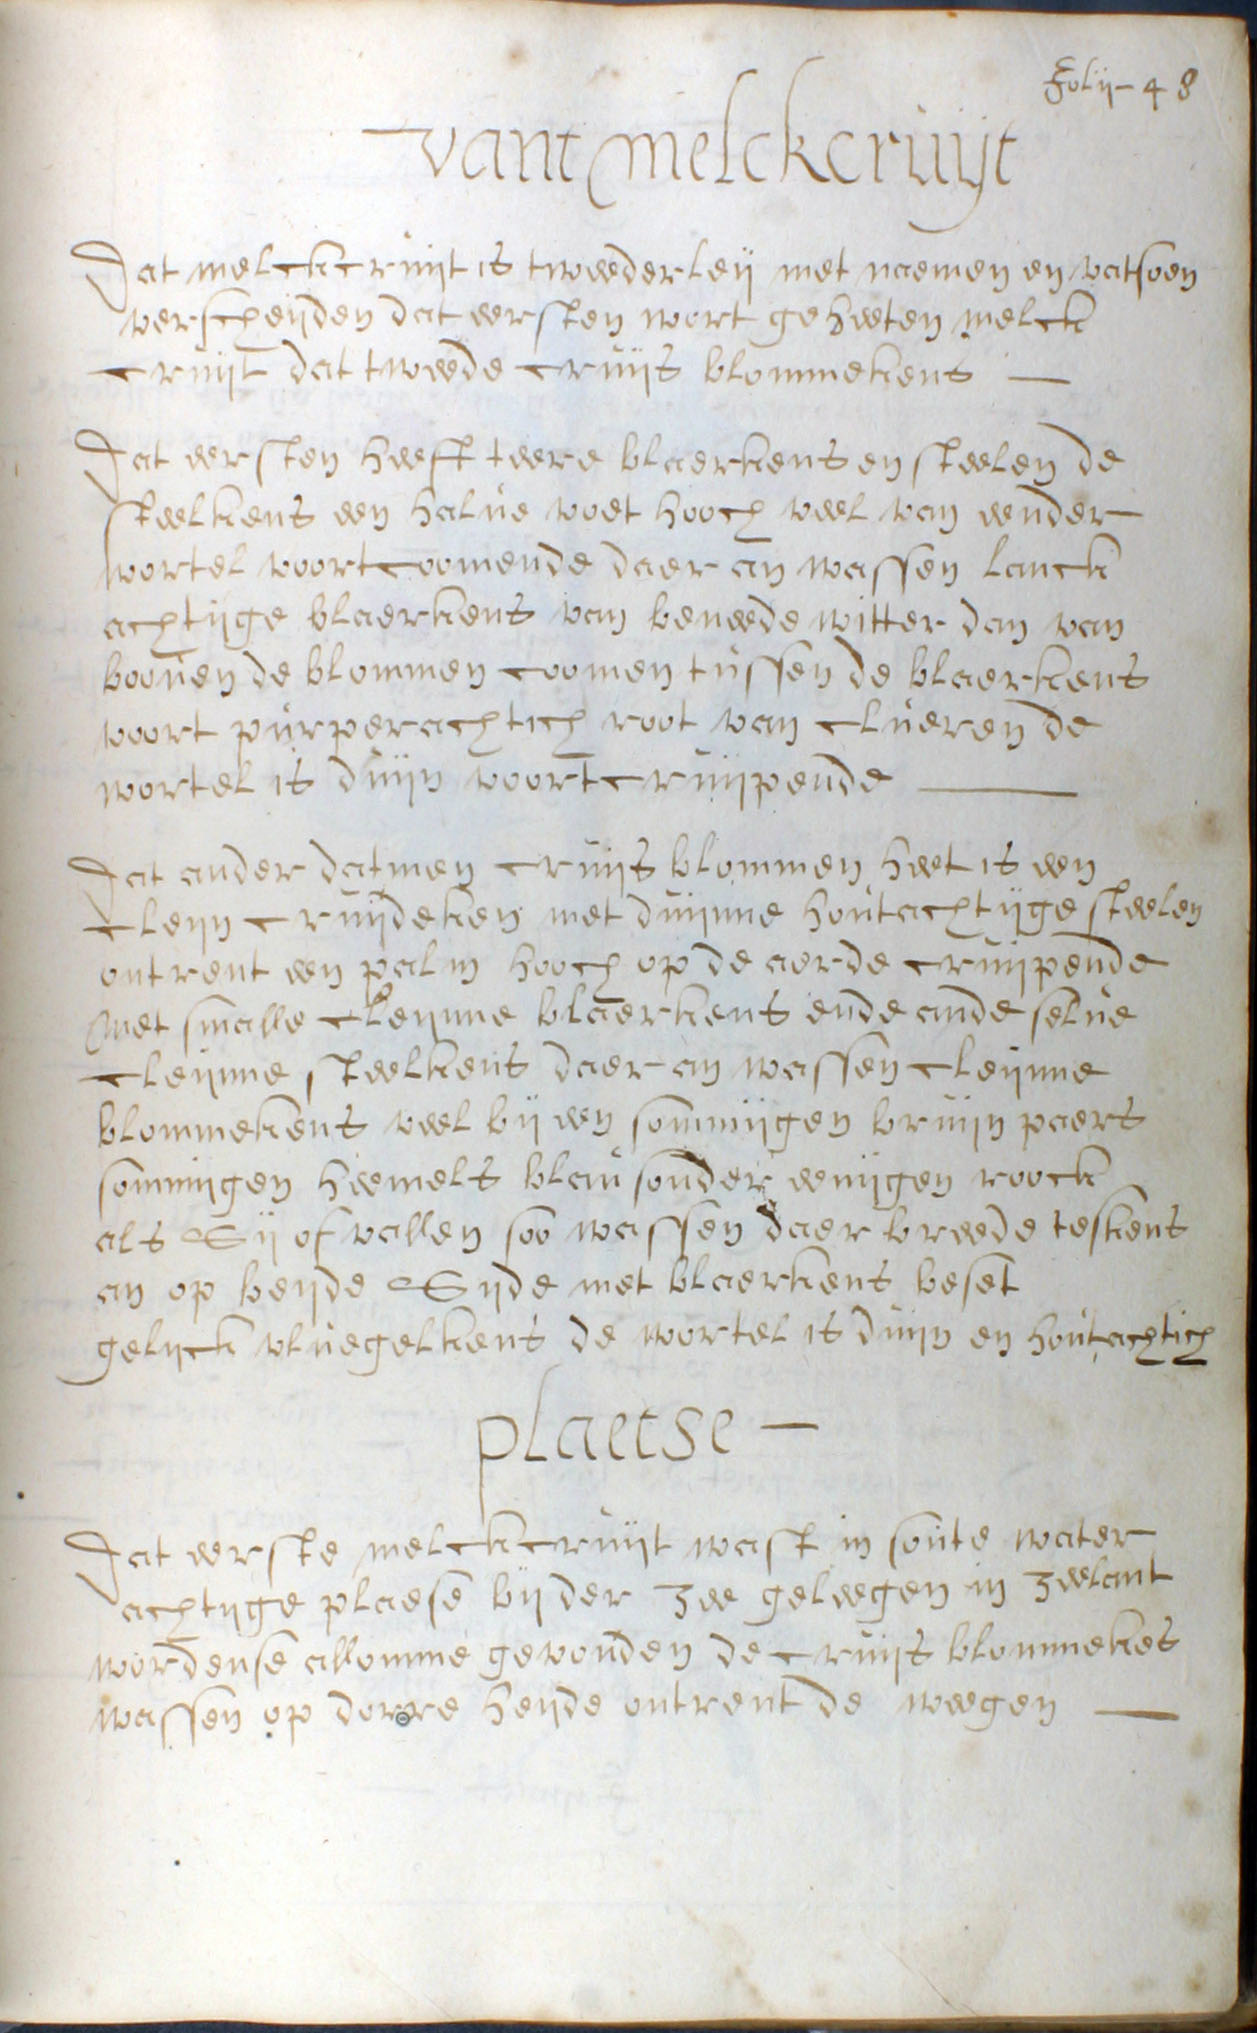 Folij - 48
vant melckcruijt
Dat melckcruijt is tweederleij met naemen en vatsoen
verscheijden dat eersten wort geheeten melck
cruijt dat tweede cruijs blommekens —
Dat eersten heeft teere blaerkens en steelen de
steelkens een halue voet hooch veel van eender
wortel voortcoomende daer an wassen lanck
achtijge blaerkens van beneede witter dan van
boouen de blommen coomen tussen de blaerkens
voort purperachtich root van clueren de
wortel is duijn voortcruijpende —
Dat ander datmen cruijs blommen heet is een
cleijn cruijdeken met duijnne houtachtijge steelen
ontrent een palm hooch op de aerde cruijpende
met smalle cleijnne blaerkens ende ande selue
cleijnne steelkens daer an wassen cleijnne
blommekens veel bij een sommijgen bruijn paers
sommijgen heemels blau sonder eenijgen roock
als Sij of vallen soo wassen daer breede teskens
an op beijde Sijde met blaerkens beset
gelijck vluegelkens de wortel is duijn en houtachtich
plaetse —
Dat eerste melckcruijt wast in soute water
achtijge plaese bij der zee geleegen in zeelant
wordense allomme gevonden de cruijs blommekes
wassen op dorre heijde ontrent de weegen —